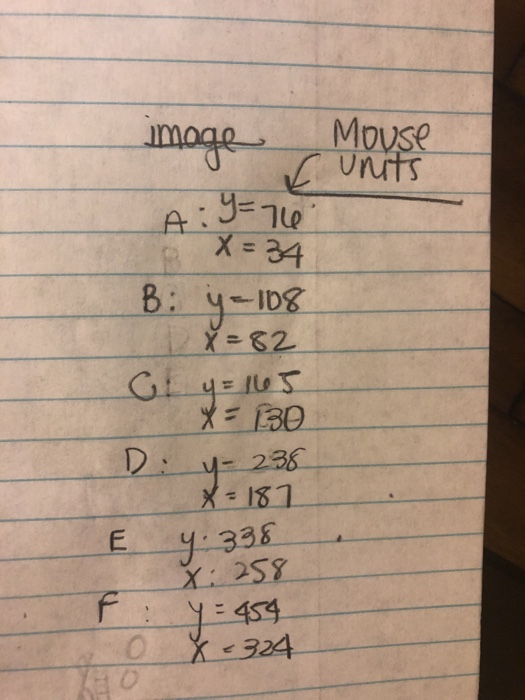 image Mouse
units
A: y=76
x = 34
B: y=108
x = 82
C: y = 165
x = 130
D: y= 238
x = 187
E y: 338
x: 258
F: y = 454
x = 324